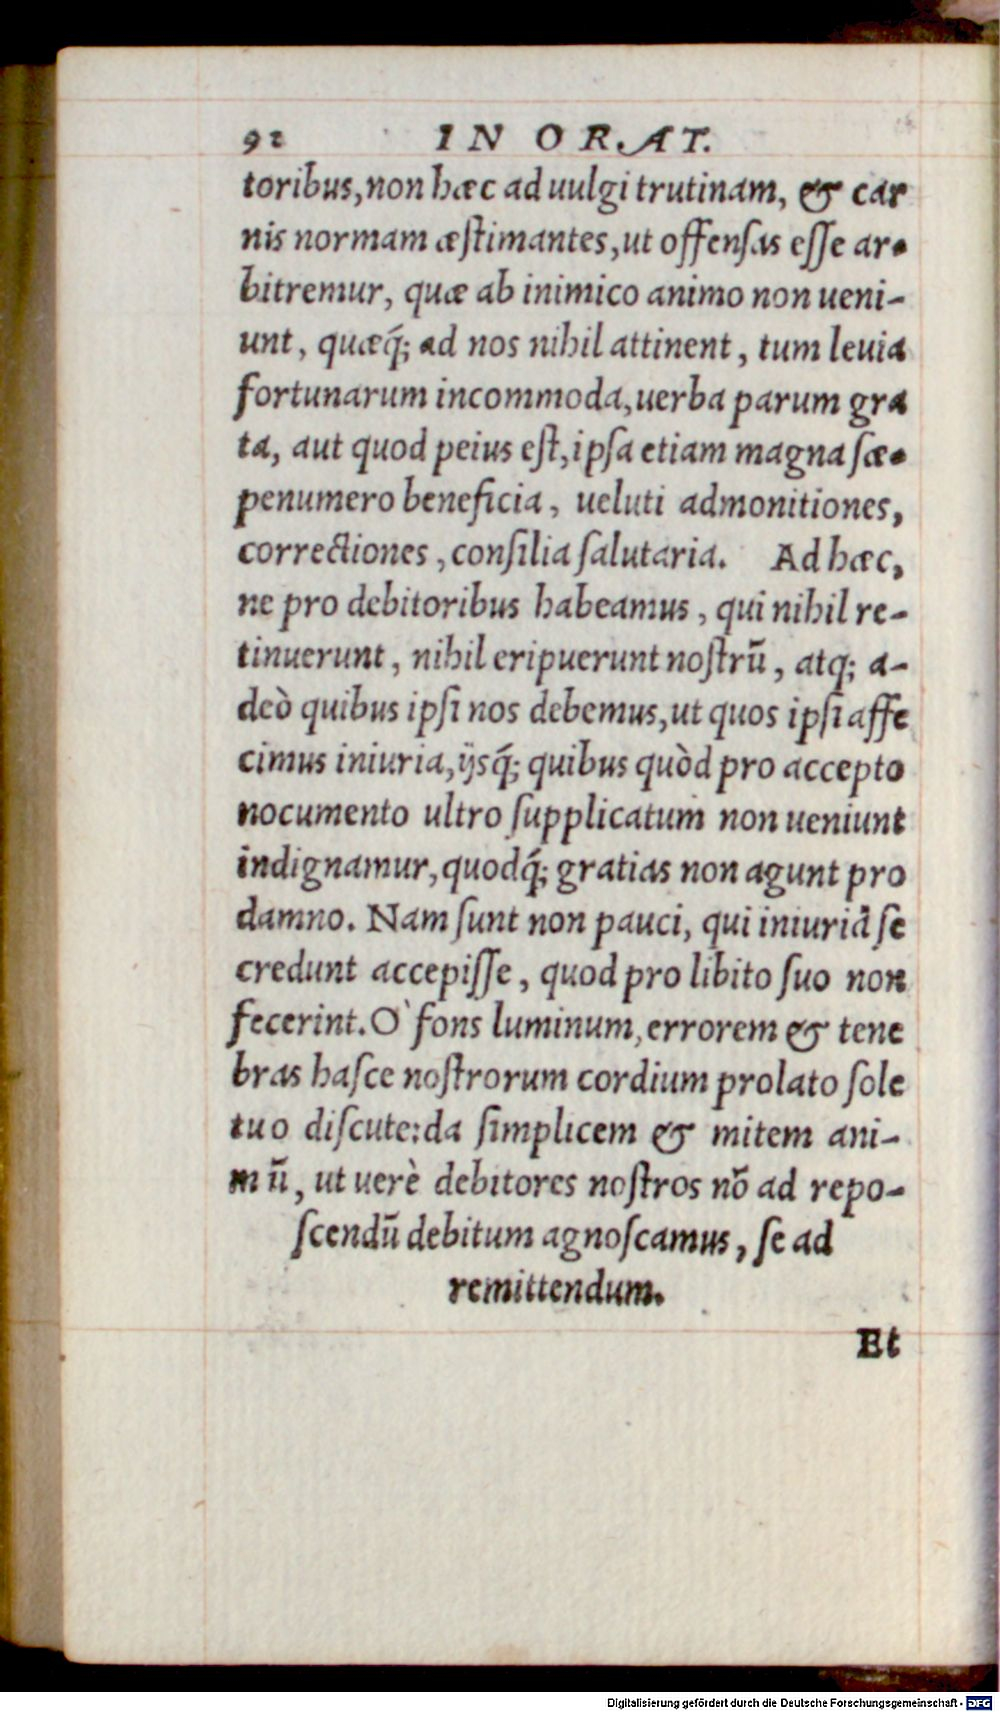 92 IN ORAT.
toribus, non hæc ad uulgi trutinam, & car
nis normam æstimantes, ut offensas esse ar-
bitremur, quæ ab inimico animo non ueni-
unt, quæq́; ad nos nihil attinent, tum leuia
fortunarum incommoda, uerba parum gra
ta, aut quod peius est, ipsa etiam magna sæ-
penumero beneficia, ueluti admonitiones,
correctiones, consilia salutaria. Ad hæc,
ne pro debitoribus habeamus, qui nihil re-
tinuerunt, nihil eripuerunt nostrū, atq; a-
deò quibus ipsi nos debemus, ut quos ipsi affe
cimus iniuria, ijsq́; quibus quòd pro accepto
nocumento ultro supplicatum non ueniunt
indignamur, quodq́; gratias non agunt pro
damno. Nam sunt non pauci, qui iniuriā se
credunt accepisse, quod pro libito suo non
fecerint. O` fons luminum, errorem & tene
bras hasce nostrorum cordium prolato sole
tuo discute: da simplicem & mitem ani-
mū, ut uerè debitores nostros nō ad repo-
scendū debitum agnoscamus, se ad
remittendum.
Et
Digitalisierung gefördert durch die Deutsche Forschungsgemeinschaft - DFG